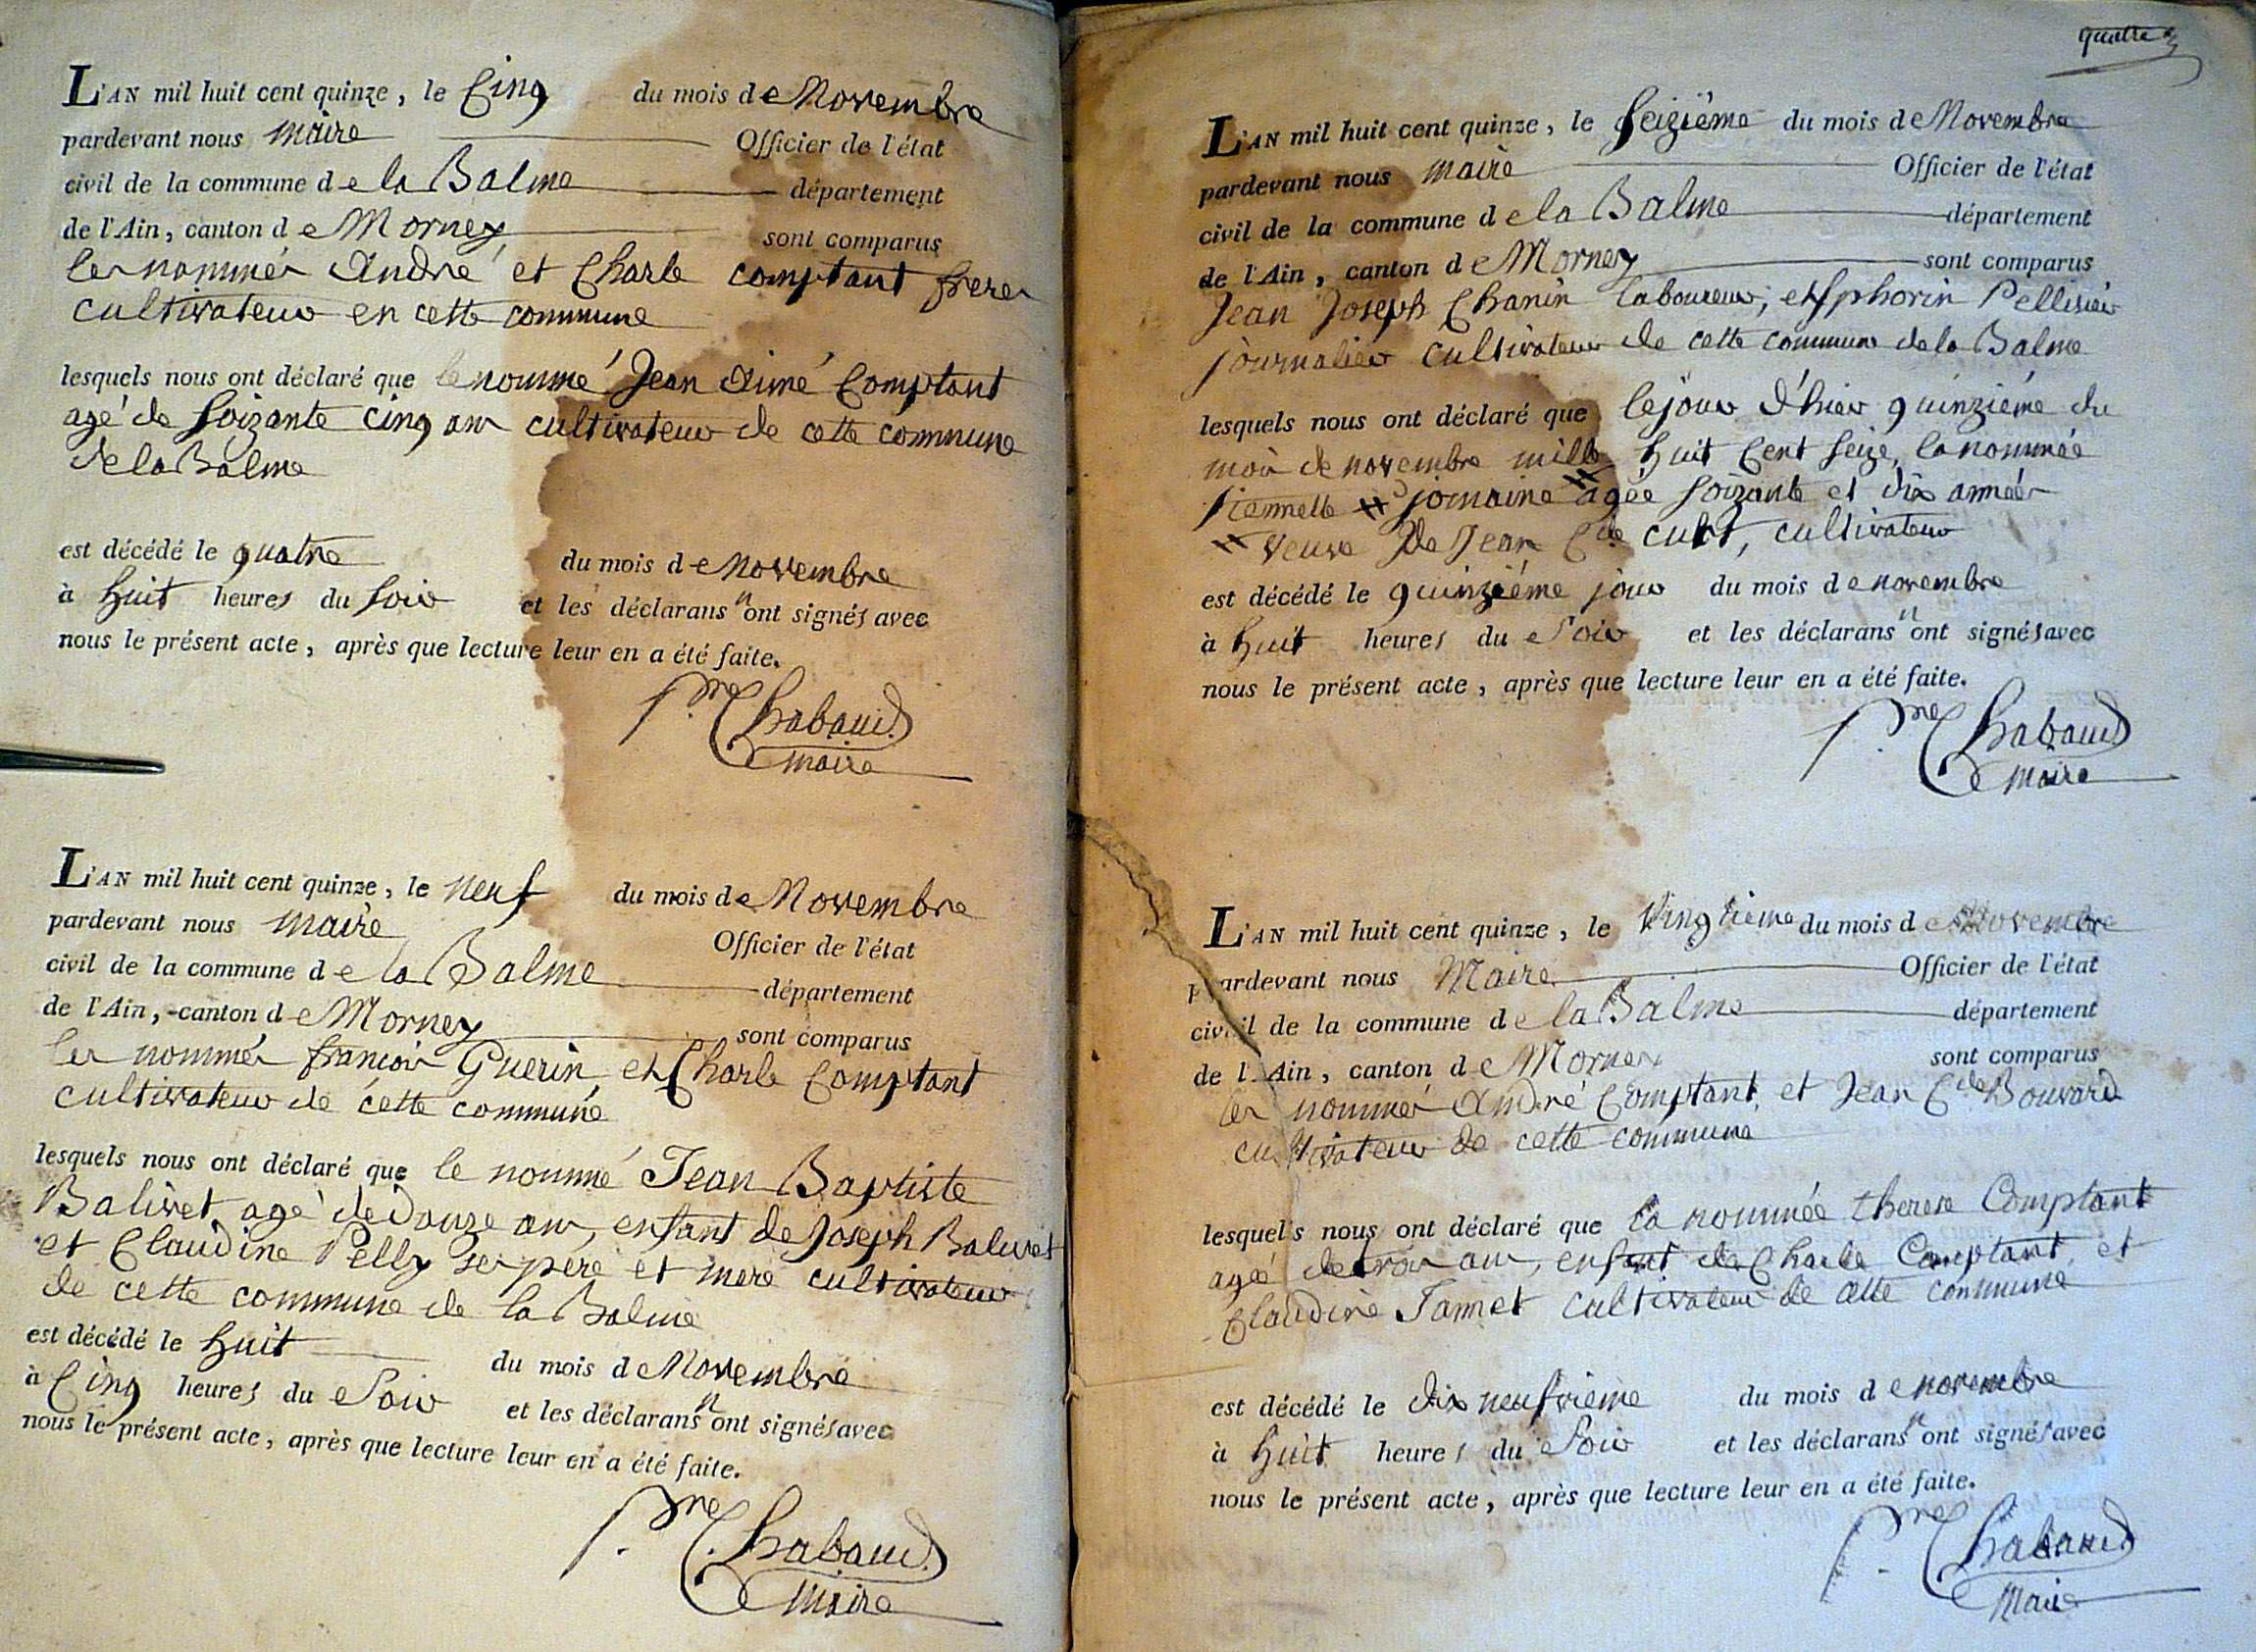 L'AN mil huit cent quinze, le Cinq du mois de Novembre
pardevant nous maire Officier de l'état
civil de la commune de la Balme département
de l'Ain, canton de Morney sont comparus
les nommés André et Charle comptant freres
cultivateur en cette commune
lesquels nous ont déclaré que le nommé Jean Aimé Comptant
agé de Soizante cinq ans cultivateur de cette commune
de la Balme
est décédé le quatre du mois de Novembre
à huit heures du Soir et les déclarans n'ont signés avec
nous le présent acte, après que lecture leur en a été faite.
Pre Chabaud
maire
L'AN mil huit cent quinze, le neuf du mois de Novembre
pardevant nous maire Officier de l'état
civil de la commune de la Balme département
de l'Ain, canton de Morney sont comparus
les nommés françois Guerin, et Charle Comptant
cultivateur de cette commune
lesquels nous ont déclaré que le nommé Jean Baptiste
Balivet agé de Douze ans, enfant de Joseph Balivet
et Claudine Pelly ses père et mere cultivateur
de cette commune de la Balme
est décédé le huit du mois de Novembre
à Cinq heures du Soir et les déclarans n'ont signés avec
nous le présent acte, après que lecture leur en a été faite.
Pre Chabaud
Maire
quatre
L'AN mil huit cent quinze, le Seizième du mois de Novembre
pardevant nous maire Officier de l'état
civil de la commune de la Balme département
de l'Ain, canton de Morney sont comparus
Jean Joseph Chanin laboureur, et Sphorin Pellisier
journalier cultivateur de cette commune de la Balme
lesquels nous ont déclaré que le jour d'hier quinziéme du
mois de novembre mille huit Cent Seize, la nommée
jomaine agée Soizante et dix années
veuve de Jean Cde curt, cultivateur
est décédé le quinziéme jour du mois de novembre
à huit heures du Soir et les déclarans n'ont signés avec
nous le présent acte, après que lecture leur en a été faite.
Pre Chabaud
Maire
L'AN mil huit cent quinze, le Vingtieme du mois de Novembre
pardevant nous Maire Officier de l'état
civil de la commune de la Balme département
de l'Ain, canton de Morney sont comparus
les nommés André Comptant, et Jean Cde Bouvard
cultivateur de cette commune
lesquels nous ont déclaré que la nommée therese Comptant
agé de trois ans, enfant de Charle Comptant et
Claudine Jannet cultivateur de cette commune
est décédé le dix neufvieme du mois de novembre
à huit heures du Soir et les déclarans n'ont signés avec
nous le présent acte, après que lecture leur en a été faite.
Pre Chabaud
Maire